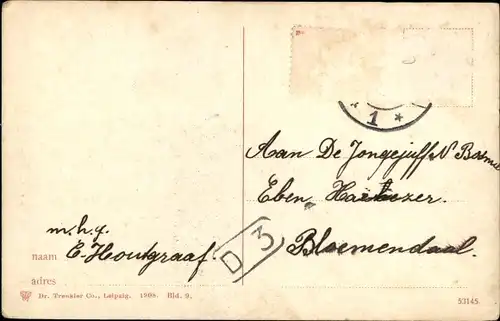 * 1 *
Aan De Jongejuff. N
Eben Haëzer.
Bloemendaal.
D 3
m.h.g.
naam E. Houtgraaf.
adres
Dr. Trenkler Co., Leipzig. 1908. Bld. 9.
53145.